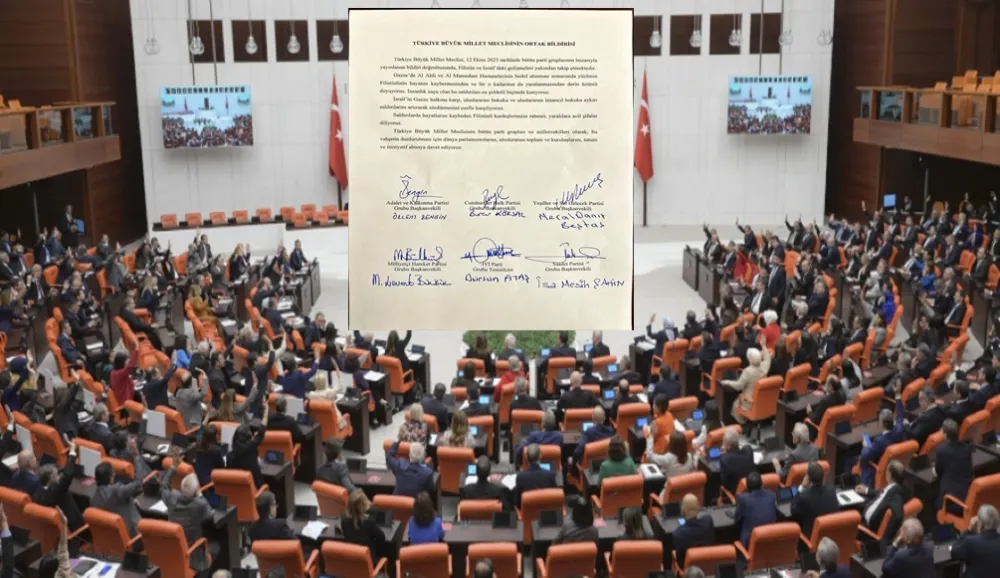 TÜRKİYE BÜYÜK MİLLET MECLİSİNİN ORTAK BİLDİRİSİ
Türkiye Büyük Millet Meclisi, 12 Ekim 2023 tarihinde bütün parti gruplarının imzasıyla
yayınlanan bildiri doğrultusunda, Filistin ve İsrail'deki gelişmeleri yakından takip etmektedir.
Gazze'de Al Ahli ve Al Mamadani Hastanelerinin hedef alınması sonucunda yüzlerce
Filistinlinin hayatını kaybetmesinden ve bir o kadarının da yaralanmasından derin üzüntü
duyuyoruz. İnsanlık suçu olan bu saldırıları en şiddetli biçimde kınıyoruz.
İsrail'in Gazze halkına karşı, uluslararası hukuka ve uluslararası insancıl hukuka aykırı
saldırılarını artırarak sürdürmesini esefle karşılıyoruz.
Saldırılarda hayatlarını kaybeden Filistinli kardeşlerimize rahmet, yaralılara acil şifalar
diliyoruz.
Türkiye Büyük Millet Meclisinin bütün parti grupları ve milletvekilleri olarak, bu
vahşetin durdurulması için dünya parlamentolarını, uluslararası toplum ve kuruluşlarını, tutum
ve inisiyatif almaya davet ediyoruz.
Adalet ve Kalkınma Partisi Cumhuriyet Halk Partisi Yeşiller ve Sol Gelecek Partisi
Grubu Başkanvekili Grubu Başkanvekili Grubu Başkanvekili
ÖZLEM ZENGİN Burcu KÖKSAL Meral Danış
Beştaş
Milliyetçi Hareket Partisi İYİ Parti Saadet Partisi
Grubu Başkanvekili Grubu Temsilcisi Grubu Başkanvekili
M. Levent Bülbül Dursun ATAŞ İsa Mesih ŞAHİN